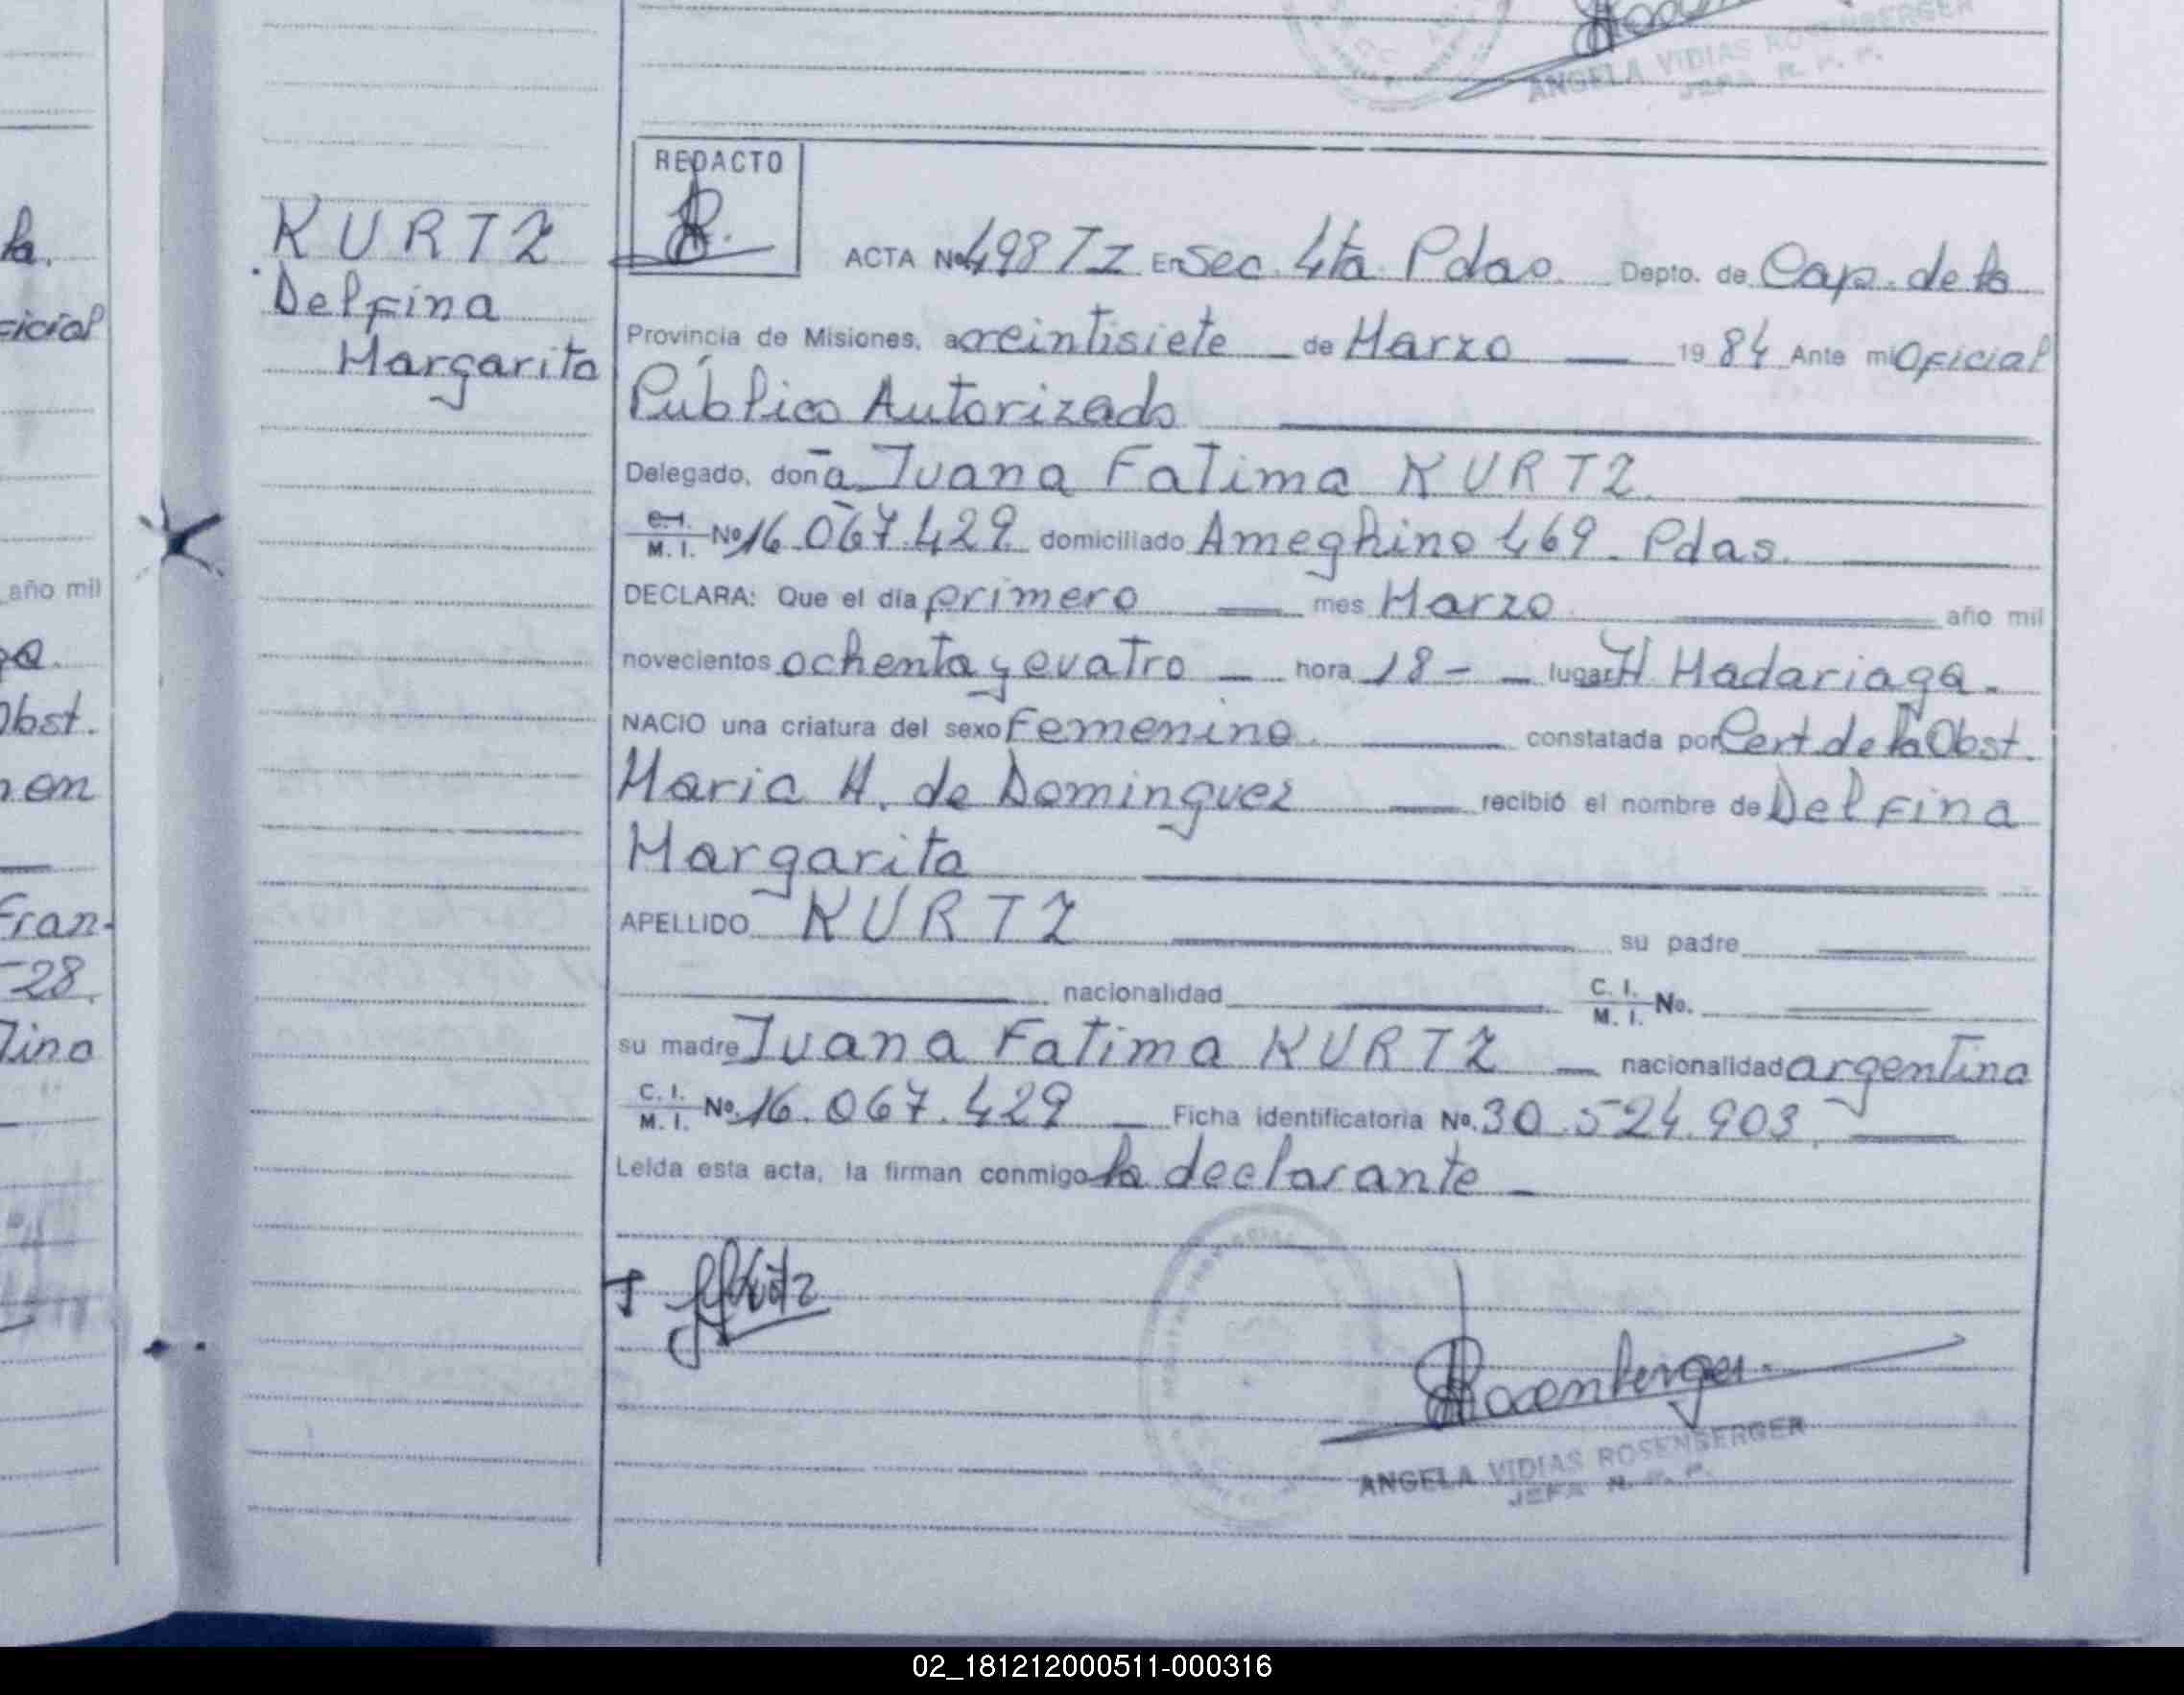 ANGELA VIDIAS ROSENBERGER
JEFA R. P. P.
REDACTO
KURTZ
Delfina
Margarita
ACTA Nº 498 TI En Sec. 4ta Pdas. Depto. de Cap. de la
Provincia de Misiones, a veintisiete de Marzo 19 84 Ante mi Oficial
Público Autorizado
Delegado, doña Juana Fatima KURTZ.
C.I. M. I. Nº 16.067.429 domiciliado Ameghino 469. Pdas.
DECLARA: Que el día primero mes Marzo año mil
novecientos ochenta y cuatro hora 18 - lugar H. Madariaga.
NACIO una criatura del sexo Femenino. constatada por Cert. de la Obst.
Maria H. de Dominguez recibió el nombre de Delfina
Margarita
APELLIDO KURTZ su padre
nacionalidad C. I. M. I. No.
su madre Juana Fatima KURTZ nacionalidad argentina
C. I. M. I. Nº 16.067.429 Ficha identificatoria Nº 30.524.903.
Leída esta acta, la firman conmigo la declarante
JFKurtz
Rosenberger
ANGELA VIDIAS ROSENBERGER
JEFA R. P. P.
la.
ficial
año mil
ga.
Obst.
en
Fran-
-28.
tina
02_181212000511-000316